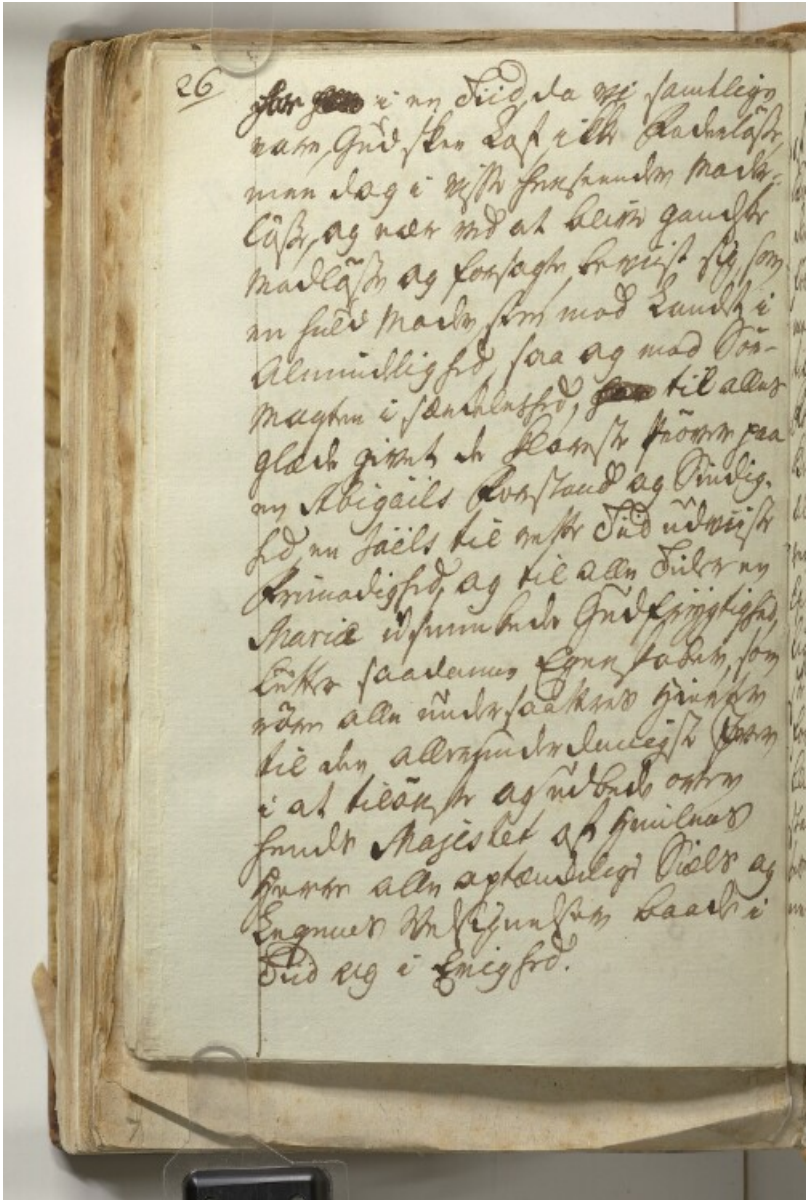 26
har i en Tiid, da vi samtlige
vare, Gud skee Lof, ikke Faderløse,
men dog i visse henseender Moder-
løse, og nær ved at blive gandske
Modløse og forsagte, beviist sig, som
en huld Moder, som mod Landet i
Almindelighed, saa og mod Søe-
Magten i særdeleshed, til alles
glæde givet de klareste Prøver paa
en Abigails Forstand og Sindig-
hed, en Jaëls til rette Tiid udviiste
Frimodighed, og til alle Tider en
Mariæ Gudfrygtighed,
lutter saadanne Egenskaber, som
røre alle undersaatters Hierter
til den allerunderdanigst
i at tilønske og udbede over
hendes Majestet af Himlens
Herre alle optænkelige Siæls og
Legemes Velsignelser baade i
Tiid og i Evighed.